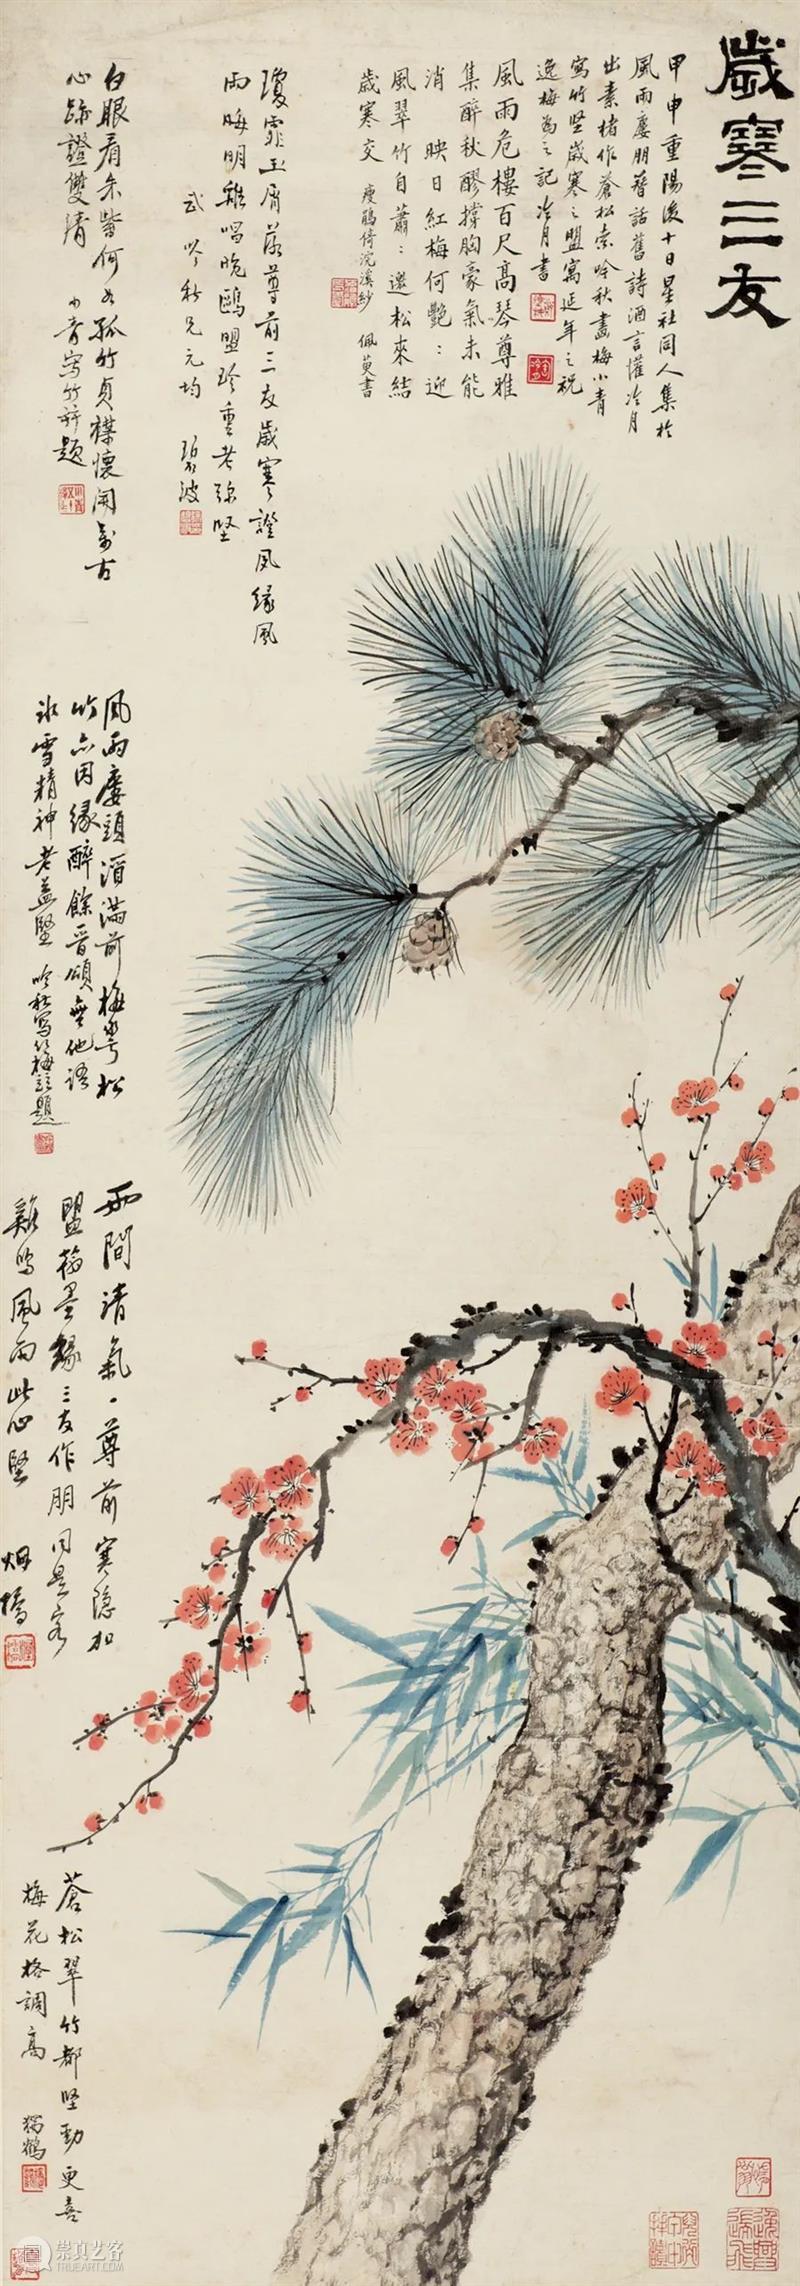 歲寒三友
甲申重陽後十日星社同人集於
風雨廔朋簪話舊詩酒言懽冷月
出素楮作蒼松索吟秋畫梅小青
寫竹堅歲寒之盟寓延年之祝
逸梅為之記冷月書
風雨危樓百尺高琴尊雅
集醉秋醪撐胸豪氣未能
消 映日紅梅何艷〻迎
風翠竹自蕭〻邀松來結
歲寒交 瘦鵑倚浣溪紗 佩萸書
瓊霏玉屑落尊前三友歲寒證夙緣風
雨晦明雞唱晚鷗盟珍重老彌堅
吟秋兄元均 碧波
白眼看朱皆何如孤竹貞襟懷開萬古
心跡證雙清 小青寫竹并題
風雨廔頭酒滿前梅兄松
竹亦因緣醉餘晉頌無他語
冰雪精神老益堅 吟秋寫梅并題
兩間清氣一尊前寒隱相
盟翰墨緣三友作朋同是客
雞鳴風雨此心堅 烟橋
蒼松翠竹都堅勁更喜
梅花格調高 獨鶴
崇真艺客